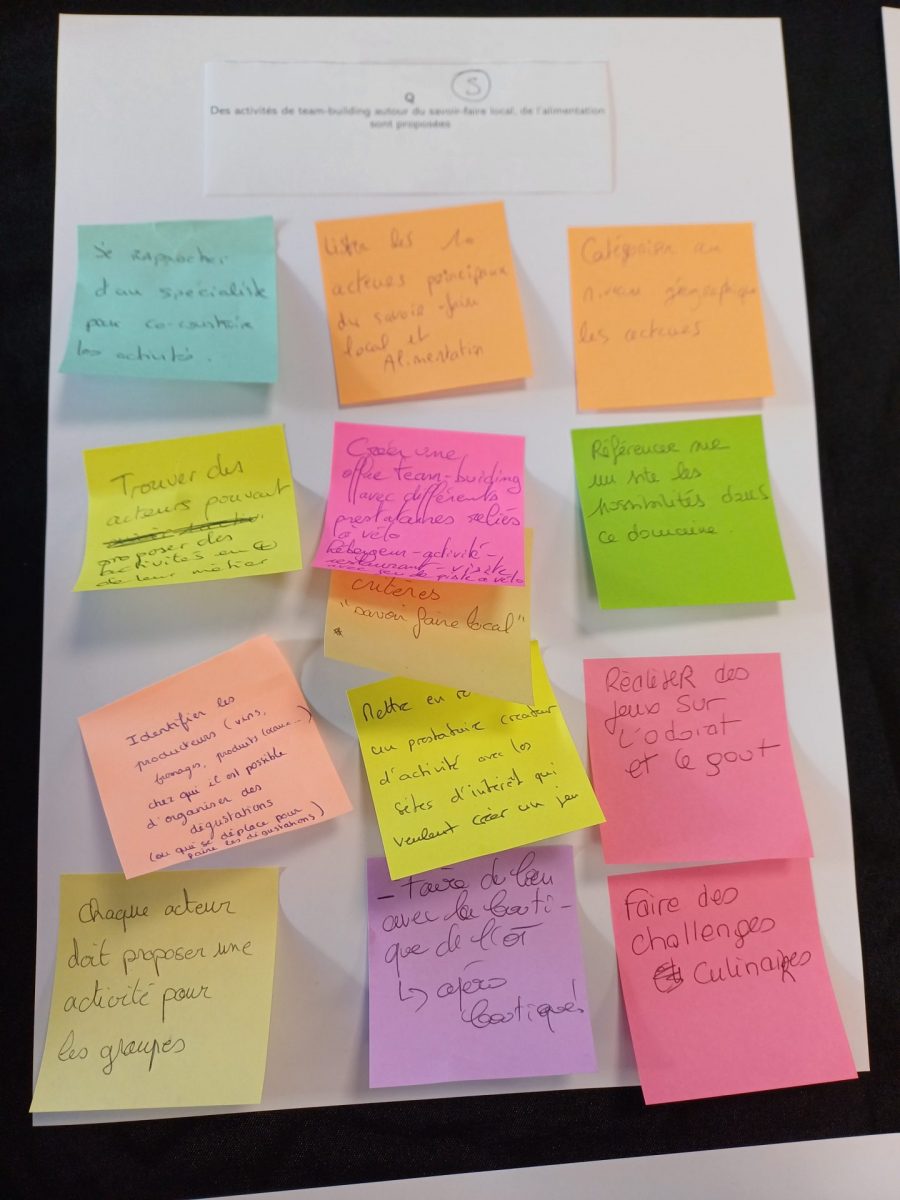 Q
5
Des activités de team-building autour du savoir-faire local, de l'alimentation
sont proposées
Se rapprocher
d'un spécialiste
pour co-construire
les activités.
Lister les 10
acteurs principaux
du savoir-faire
local et
Alimentation
Catégoriser au
niveau géographique
les acteurs
Trouver des
acteurs pouvant
proposer des
activités en
de leur métier
Créer une
offre team-building
avec différents
prestataires reliés
à vélo
hébergeur-activité-
restaurant-visite
à vélo
Référencer sur
un site les
possibilités dans
ce domaine.
critères
"savoir faire local"
Identifier les
producteurs (vins,
fromages, produits
chez qui il est possible
d'organiser des
dégustations
(ou qui se déplace pour
faire les dégustations)
Mettre en re
un prestataire créateur
d'activité avec les
sites d'intérêt qui
veulent créer un jeu
RéalisER des
jeux sur
L'odorat
et le goût
Chaque acteur
doit proposer une
activité pour
les groupes
- Faire de lien
avec la bouti-
que de l'OT
↳ apéro
boutiques
Faire des
challenges
CulinaiRes